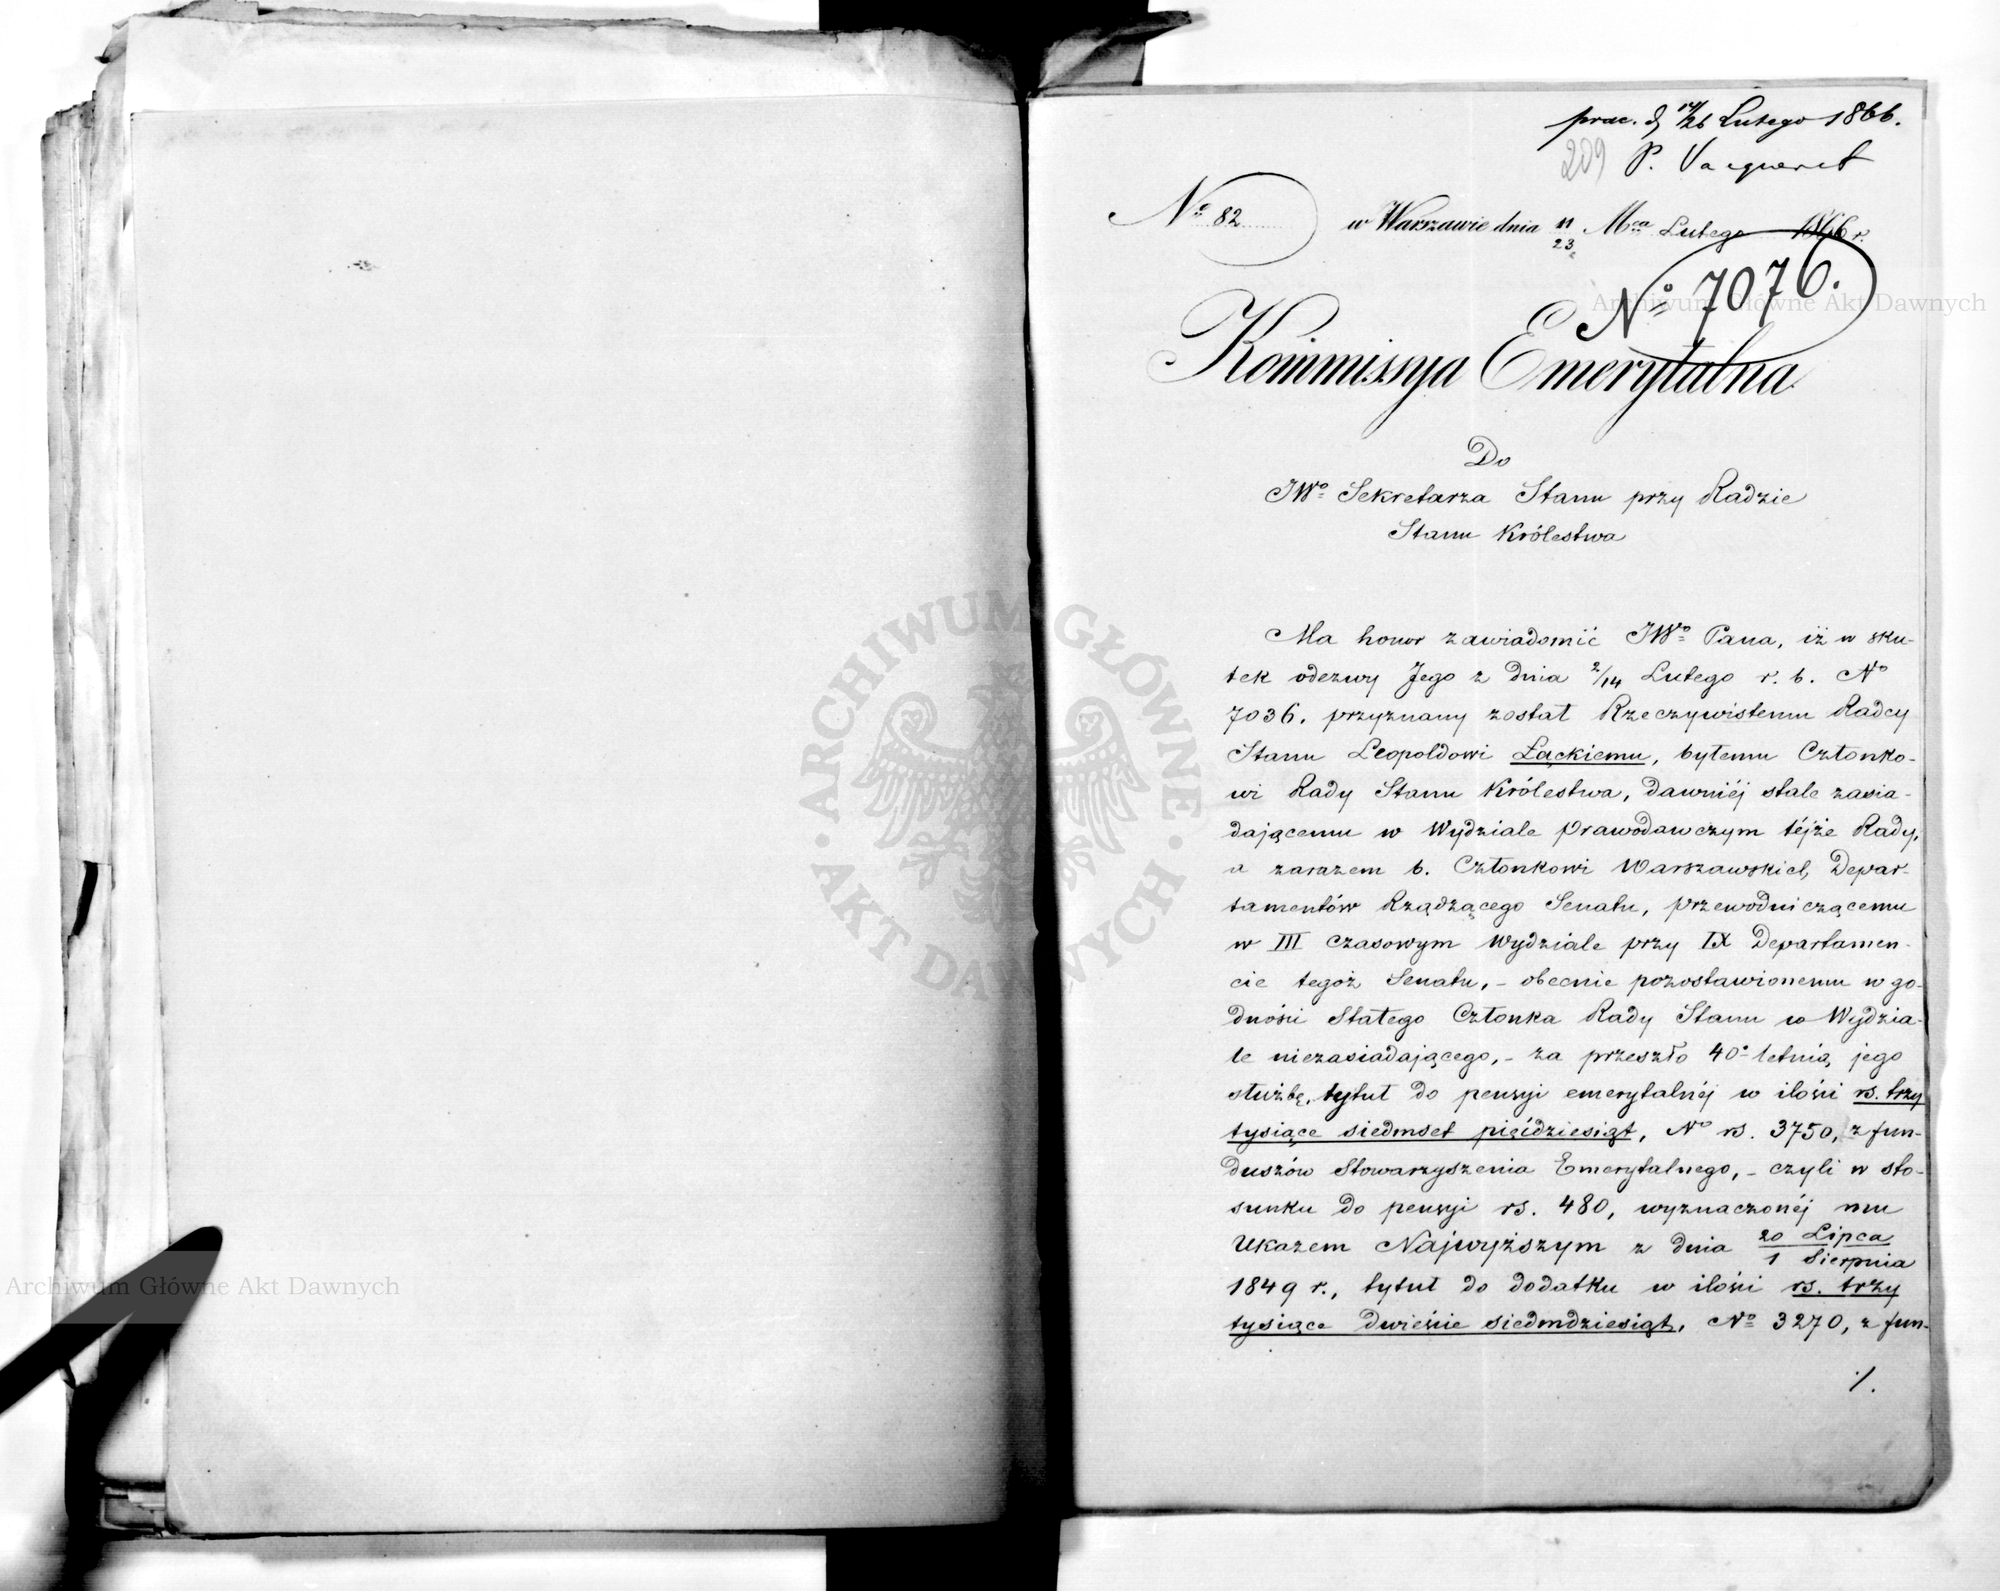 prac. d. 14/26 Lutego 1866.
209 P. Vacqueret
No 82 w Warszawie dnia 11/23 Mca Lutego 1866 r.
No 7076.
Kommissya Emerytalna
Do
JWo Sekretarza Stanu przy Radzie
Stanu Królestwa
Ma honor zawiadomić JWo Pana, iż w sku-
tek odezwy Jego z dnia 2/14 Lutego r. b. No
7036, przyznany został Rzeczywistemu Radcy
Stanu Leopoldowi Łąckiemu, byłemu Członko-
wi Rady Stanu Królestwa, dawniéj stale zasia-
dającemu w Wydziale Prawodawczym téjże Rady,
a zarazem b. Członkowi Warszawskich Depar-
tamentów Rządzącego Senatu, przewodniczącemu
w III czasowym Wydziale przy IX Departamen-
cie tegoż Senatu, - obecnie pozostawionemu w go-
dności Stałego Członka Rady Stanu w Wydzia-
le niezasiadającego, - za przeszło 40o letnią jego
służbę, tytuł do pensyi emerytalnéj w ilości rs. trzy
tysiące siedmset pięćdziesiąt, No rs. 3750, z fun-
duszów Stowarzyszenia Emerytalnego, - czyli w sto-
sunku do pensyi rs. 480, wyznaczonéj mu
Ukazem Najwyższym z dnia 20 Lipca
1 Sierpnia
1849 r., tytuł do dodatku w ilości rs. trzy
tysiące dwieście siedmdziesiąt, No 3270, z fun-
./.
Archiwum Główne Akt Dawnych
Archiwum Główne Akt Dawnych
ARCHIWUM GŁÓWNE · AKT DAWNYCH ·